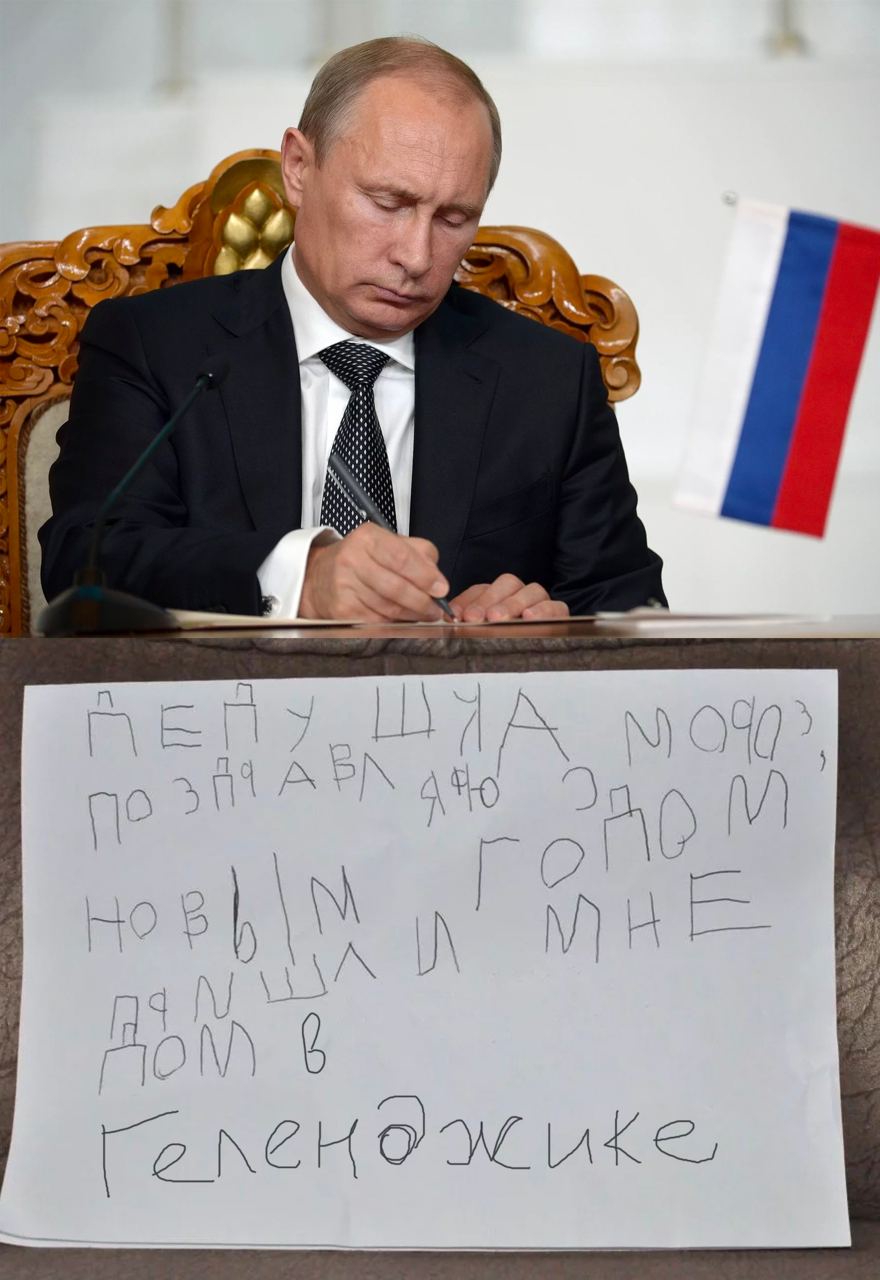 ДЕДУШКА МОРОЗ,
ПОЗДРАВЛЯЮ С
НОВЫМ ГОДОМ
ПРИШЛИ МНЕ
ДОМ В
Геленджике